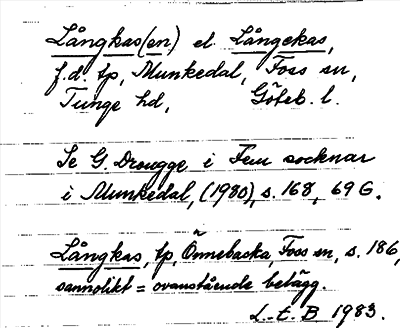 Långkas(en) el Långekas,
f.d. tp, Munkedal, Foss sn,
Tunge hd, Göteb. l.
Se G. Drougge i Fem socknar
i Munkedal, (1980), s. 168, 69 G.
Långkas, tp, Önnebacka, Foss sn, s. 186,
sannolikt = ovanstående belägg.
L.-E. B 1983.